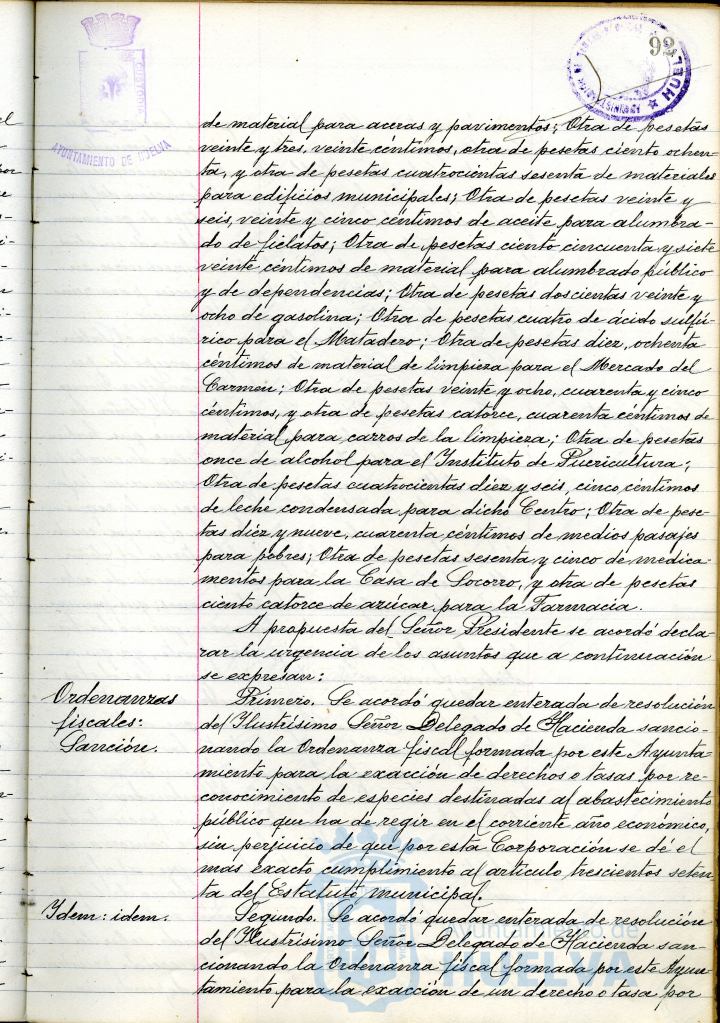 92
HUELVA
AYUNTAMIENTO DE HUELVA
de material para aceras y pavimentos; Otra de pesetas
veinte y tres, veinte céntimos, otra de pesetas ciento ochen-
ta, y otra de pesetas cuatrocientas sesenta de materiales
para edificios municipales; Otra de pesetas veinte y
seis, veinte y cinco céntimos de aceite para alumbra-
do de fielatos; Otra de pesetas ciento cincuenta y siete
veinte céntimos de material para alumbrado público
y de dependencias; Otra de pesetas doscientas veinte y
ocho de gasolina; Otra de pesetas cuatro de ácido sulfú-
rico para el Matadero; Otra de pesetas diez, ochenta
céntimos de material de limpieza para el Mercado del
Carmen; Otra de pesetas veinte y ocho, cuarenta y cinco
céntimos, y otra de pesetas catorce, cuarenta céntimos de
material para carros de la limpieza; Otra de pesetas
once de alcohol para el Instituto de Puericultura;
Otra de pesetas cuatrocientas diez y seis, cinco céntimos
de leche condensada para dicho Centro; Otra de pese-
tas diez y nueve, cuarenta céntimos de medios pasajes
para pobres; Otra de pesetas sesenta y cinco de medica-
mentos para la Casa de Socorro, y otra de pesetas
ciento catorce de azúcar para la Farmacia.
A propuesta del Señor Presidente se acordó decla-
rar la urgencia de los asuntos que a continuación
se expresan:
Ordenanzas
fiscales:
Sanción.
Primero. Se acordó quedar enterada de resolución
del Ilustrísimo Señor Delegado de Hacienda sancio-
nando la Ordenanza fiscal formada por este Ayunta-
miento para la exacción de derechos o tasas por re-
conocimiento de especies destinadas al abastecimiento
público que ha de regir en el corriente año económico,
sin perjuicio de que por esta Corporación se dé el
mas exacto cumplimiento al artículo trescientos seten-
ta del Estatuto municipal.
Idem: idem.
Segundo. Se acordó quedar enterada de resolución
del Ilustrísimo Señor Delegado de Hacienda san-
cionando la Ordenanza fiscal formada por este Ayun-
tamiento para la exacción de un derecho o tasa por
Ayuntamiento de
HUELVA